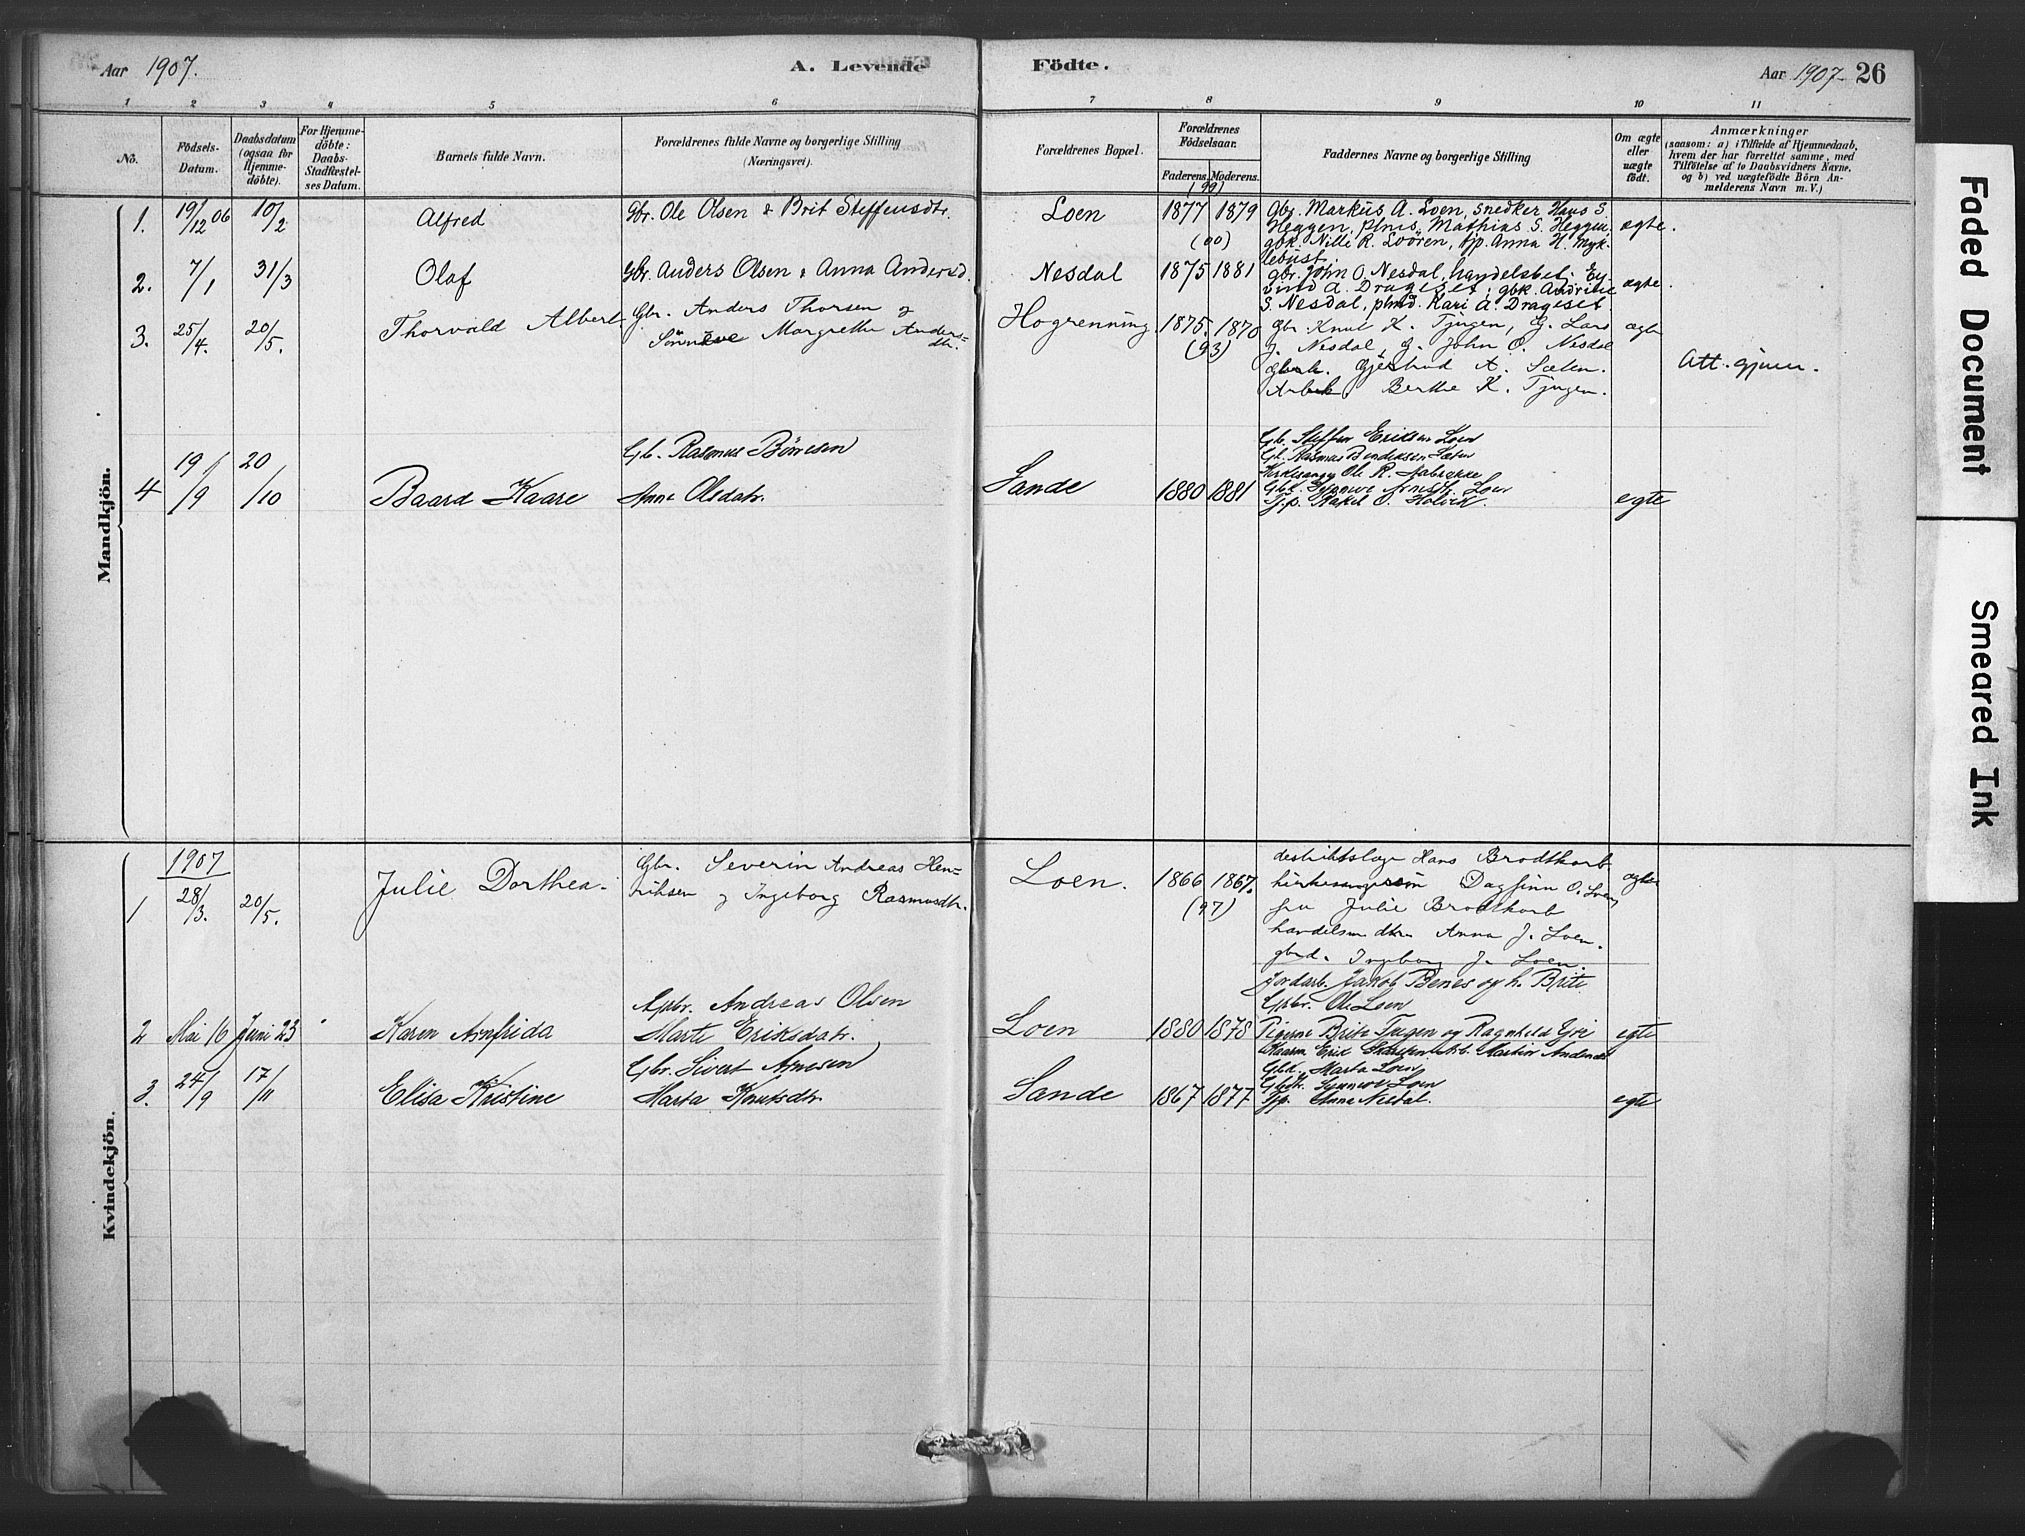 Aar 1907.
A. Levende Födte.
Aar 1907 26
1 2 3 4 5 6 7 8 9 10 11
No.
Födsels-
Datum.
Daabsdatum
(ogsaa for
Hjemme-
döbte).
For Hjemme-
döbte:
Daabs-
Stadfæstel-
ses Datum.
Barnets fulde Navn.
Forældrenes fulde Navne og borgerlige Stilling
(Næringsvei).
Forældrenes Bopæl.
Forældrenes
Födselsaar.
Faderens. Moderens.
Faddernes Navne og borgerlige Stilling
Om ægte
eller
uægte
födt.
Anmærkninger
(saasom: a) i Tilfælde af Hjemmedaab,
hvem der har forrettet samme, med
Tilföielse af to Daabsvidners Navne,
og b) ved uægtefödte Börn An-
melderens Navn m. V.)
Mandkjön.
1. 19/12 06 10/2 Alfred Gbr. Ole Olsen & Brit Steffensdtr. Loen 1877 (99) 1879 ægte.
Gbr. Markus A. Loen, snedker Hans S.
Heggen, plms. Mathias S. Heggen,
gbk. Nille R. Loören, tjp. Anna H. Myk-
lebust.
2. 7/1 31/3 Olaf Gbr. Anders Olsen & Anna Andersd. Nesdal 1875 (00) 1881 ægte.
gbr. John O. Nesdal, handelsbet. Ey-
vind A. Drageset, gbk. Andrine
S. Nesdal, plmd. Kari A. Drageset.
3. 25/4. 20/5. Thorvald Albert Gbr. Anders Thorsen og
Sönneve Margrethe Anders-
dtr.
Hogrenning 1875. 1870 (93) ægte
Gbr. Knut K. Tjugen, G. Lars
J. Nesdal, G. John O. Nesdal
Gjertrud A. Sæten.
Berthe K. Tjugen.
Att.
4 19/9 20/10 Baard Kaare Gb. Rasmus Börresen
Anne Olsdatr.
Sande 1880 1881 egte
Gb. Steffen Eriksen Loen
Gb. Rasmus Bendiksen Sæten
Kirkesanger Ole R. Aabrække
Gbd. Synneve Loen
Tjp. Rakel O. Holvik.
Kvindekjön.
1907
1 28/3. 20/5. Julie Dorthea. Gbr. Severin Andreas Hen-
riksen og Ingeborg Rasmusdtr.
Loen. 1866 1867. (97) ægte
Hans Brodtkorb
Dagfinn O. Loen,
fru Julie Brodtkorb
Anna J. Loen.
gbrd. Ingeborg J. Loen.
2 Mai 16 Juni 23 Karen Arnfrida Gbr. Andreas Olsen
Marte Eriksdatr.
Loen 1880 1878 egte
Jordarb. Jakob Benes og h. Brite
Gbr. Ole Loen
Pigerne Brite Tjugen og Ragnhild
3. 24/9 17/11 Elisa Kristine Gbr. Sivert Arnesen
Marta Knutsdtr.
Sande 1867 1877 egte
Erik Martin
Gbd. Marta Loen
Synneve Loen
Tjp. Anne Nesdal.
Faded Document
Smeared Ink